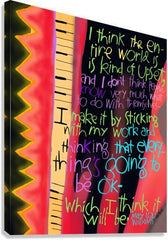 I think the en
tire world is
is kind of upset
and I don't think
know very much
to do with themselves
I make it by sticking
with my work and
thinking that every
thing's going to
be ok-
which I think it
will be.